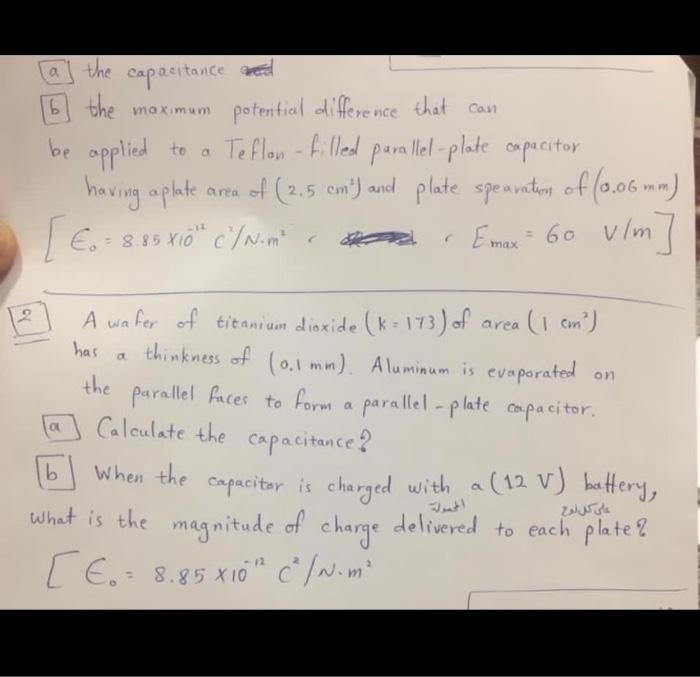 a the capacitance
b the maximum potential difference that can
be applied to a Teflon-filled parallel-plate capacitor
having a plate area of (2.5 cm²) and plate spearation of (0.06 mm)
[ ϵ₀ = 8.85 X10⁻¹² C²/N.m² , , Emax = 60 V/m ]
2 A wafer of titanium dioxide (k = 173) of area (1 cm²)
has a thinkness of (0.1 mm). Aluminum is evaporated on
the parallel faces to form a parallel-plate capacitor.
a Calculate the capacitance?
b When the capacitor is charged with a (12 V) battery,
what is the magnitude of charge delivered to each plate?
[ ϵ₀ = 8.85 X10⁻¹² C²/N.m²